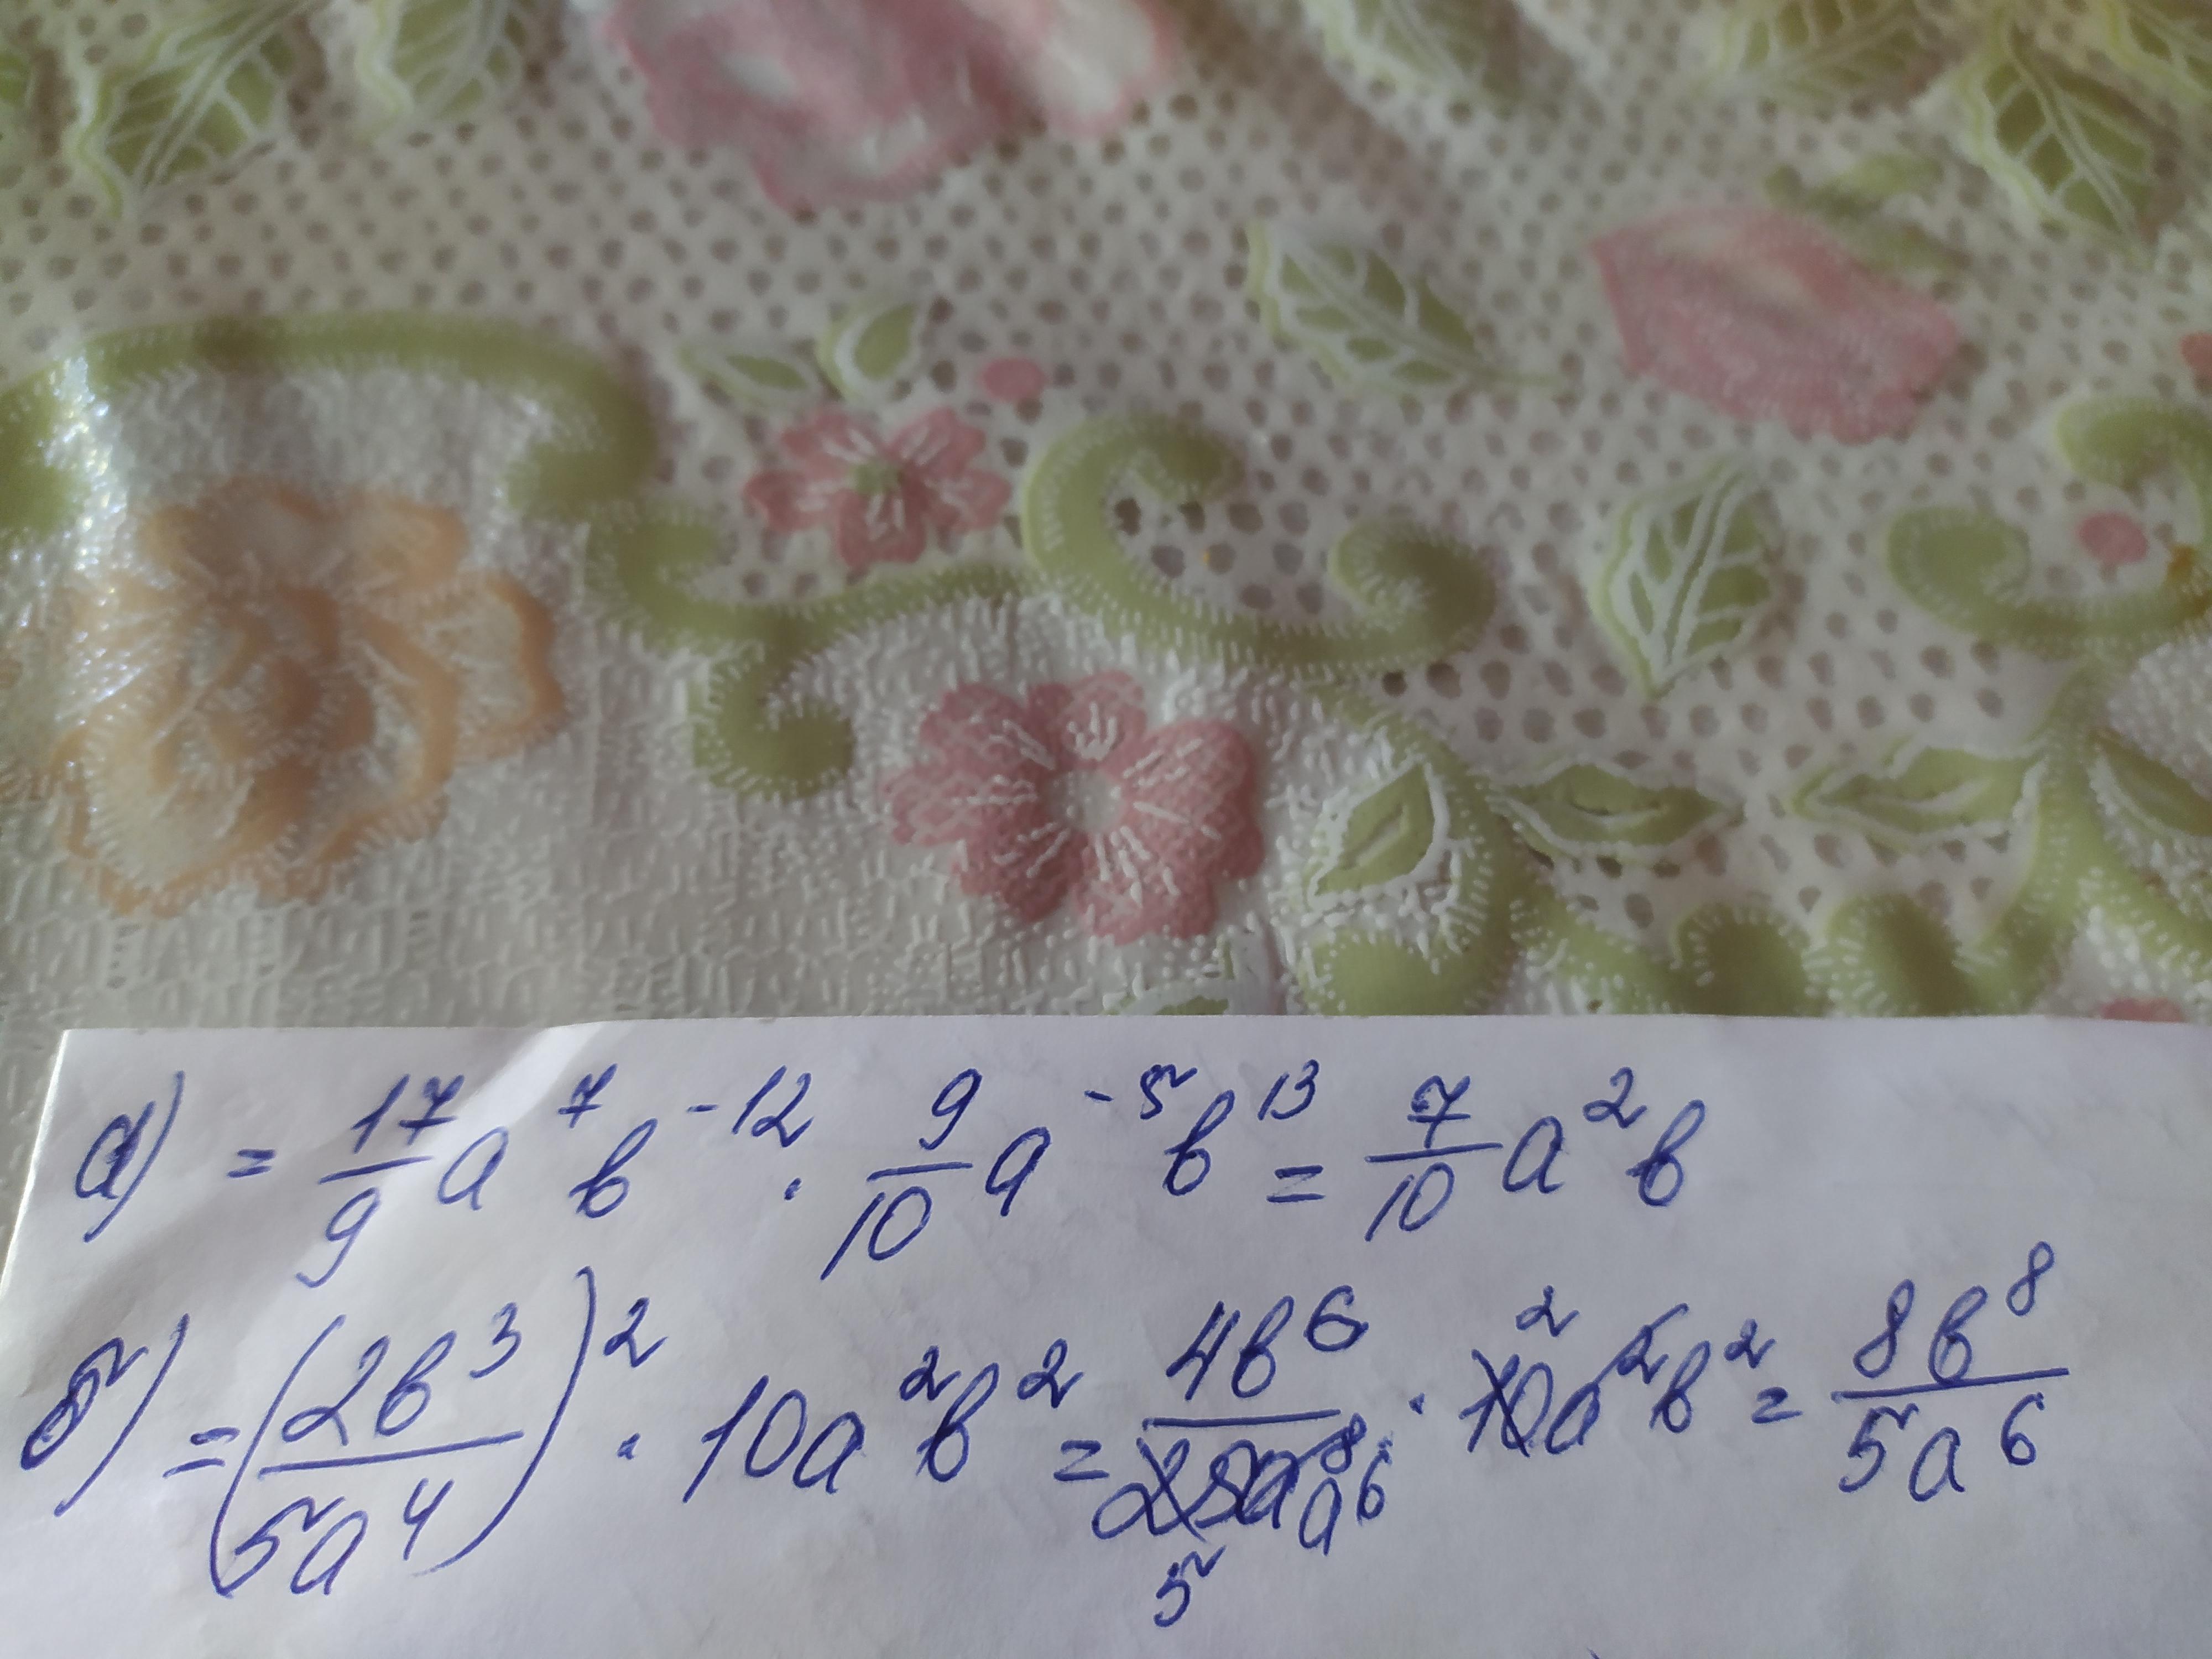 а) = 17/9 a⁷ b⁻¹² · 9/10 a⁻⁵ b¹³ = 7/10 a² b
б) = (2b³/5a⁴)² · 10a²b² = 4b⁶/25a⁸ 5 a⁶ · 10 2 a²b² = 8b⁸/5a⁶